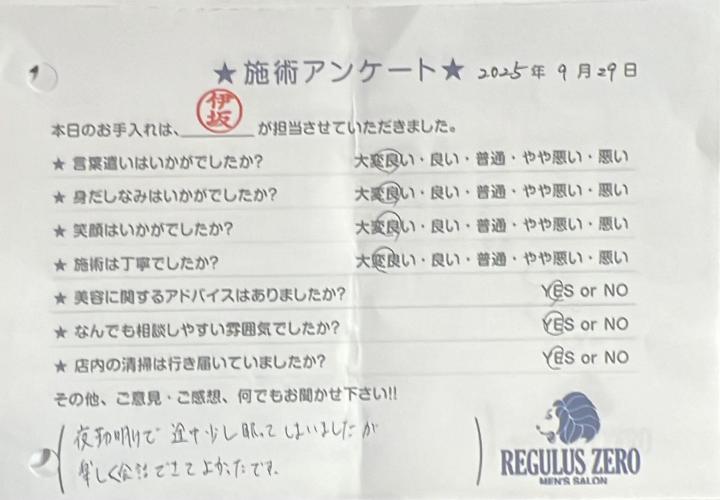 ★施術アンケート★ 2025年 9月29日
本日のお手入れは、伊坂が担当させていただきました。
★ 言葉遣いはいかがでしたか? 大変良い・良い・普通・やや悪い・悪い
★ 身だしなみはいかがでしたか? 大変良い・良い・普通・やや悪い・悪い
★ 笑顔はいかがでしたか? 大変良い・良い・普通・やや悪い・悪い
★ 施術は丁寧でしたか? 大変良い・良い・普通・やや悪い・悪い
★ 美容に関するアドバイスはありましたか? YES or NO
★ なんでも相談しやすい雰囲気でしたか? YES or NO
★ 店内の清掃は行き届いていましたか? YES or NO
その他、ご意見・ご感想、何でもお聞かせ下さい!!
夜勤明けで 途中少し眠ってしまいましたが
楽しく会話できてよかったです。
REGULUS ZERO
MEN'S SALON